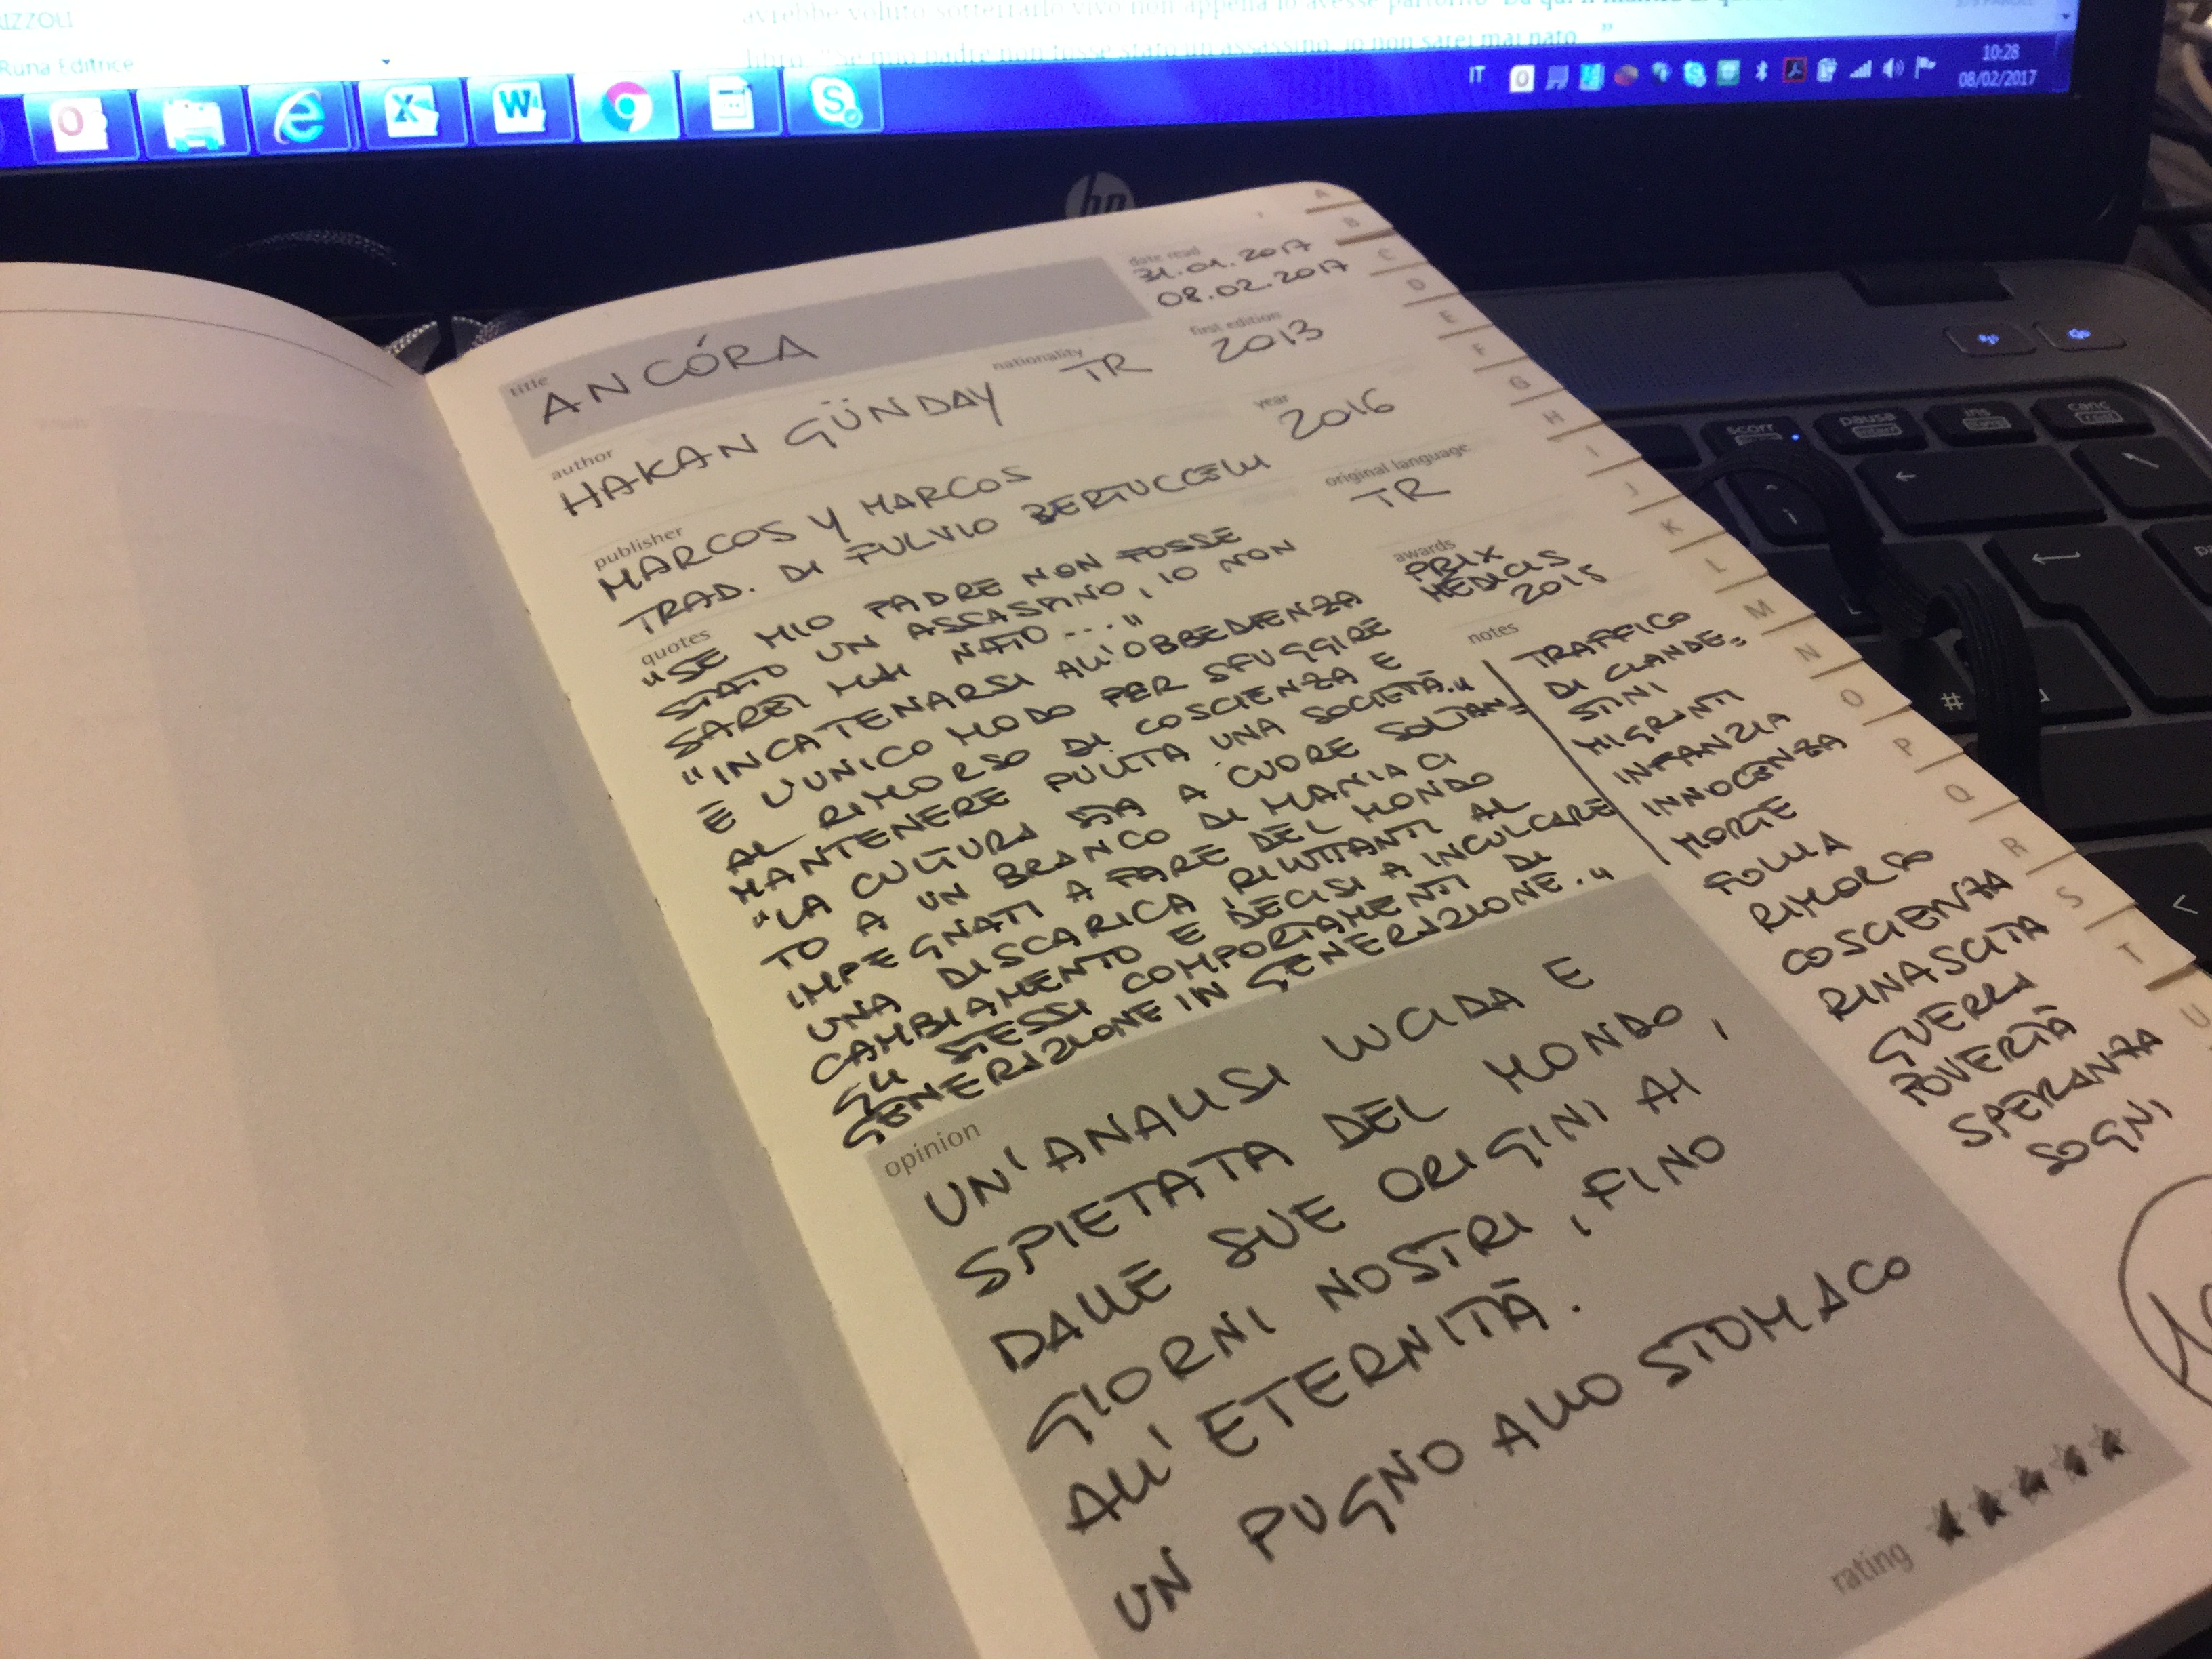 RIZZOLI
Runa Editrice
avrebbe voluto sotterrarlo vivo non appena lo avesse partorito
"se mio padre non fosse stato un assassino, io non sarei mai nato..."
IT
10:28
08/02/2017
hp
date read
31.01.2017
08.02.2017
title
ANCÓRA
nationality
TR
first edition
2013
author
HAKAN GÜNDAY
year
2016
publisher
MARCOS Y MARCOS
TRAD. DI FULVIO BERTUCCELLI
original language
TR
awards
PRIX
MEDICIS
2015
quotes
"SE MIO PADRE NON FOSSE
STATO UN ASSASSINO, IO NON
SAREI MAI NATO..."
"INCATENARSI ALL'OBBEDIENZA
È L'UNICO MODO PER SFUGGIRE
AL RIMORSO DI COSCIENZA E
MANTENERE PULITA UNA SOCIETÀ."
"LA CULTURA STA A CUORE SOLTAN=
TO A UN BRANCO DI MANIACI
IMPEGNATI A FARE DEL MONDO
UNA DISCARICA, RILUTTANTI AL
CAMBIAMENTO E DECISI A INCULCARE
GLI STESSI COMPORTAMENTI DI
GENERAZIONE IN GENERAZIONE."
notes
TRAFFICO
DI CLANDE=
STINI
MIGRANTI
INFANZIA
INNOCENZA
MORTE
FOLLIA
RIMORSO
COSCIENZA
RINASCITA
GUERRA
POVERTÀ
SPERANZA
SOGNI
opinion
UN'ANALISI LUCIDA E
SPIETATA DEL MONDO,
DALLE SUE ORIGINI AI
GIORNI NOSTRI, FINO
ALL'ETERNITÀ.
UN PUGNO ALLO STOMACO
rating
A
B
C
D
E
F
G
H
I
J
K
L
M
N
O
P
Q
R
S
T
U
scorr
pausa
ins
canc
#
<